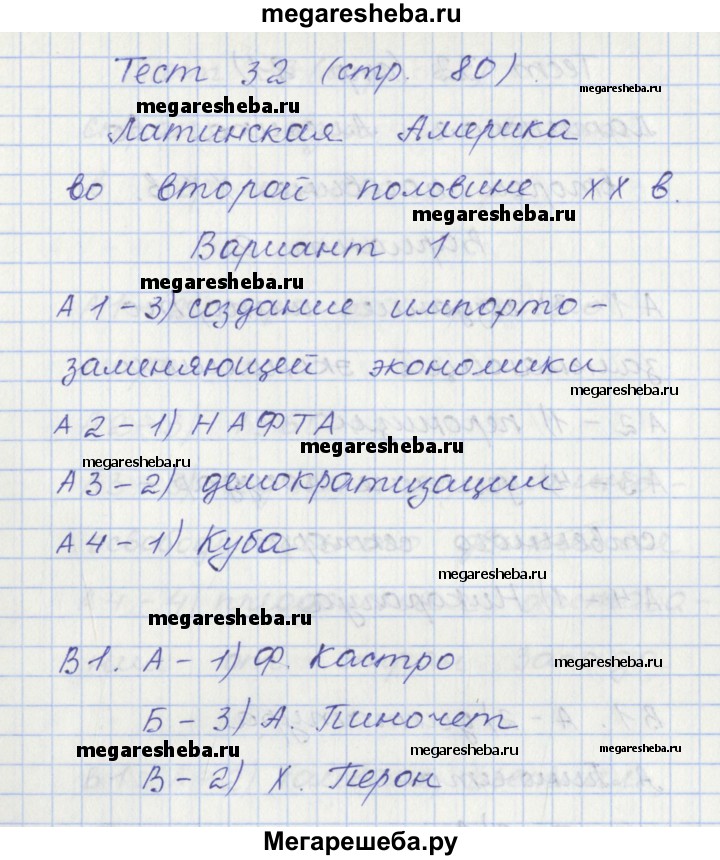 megaresheba.ru
Тест 32 (стр. 80).
megaresheba.ru
megaresheba.ru
Латинская Америка
во второй половине XX в.
megaresheba.ru
Вариант 1
megaresheba.ru
А1-3) создание импорто-
заменяющей экономики
megaresheba.ru
А2-1) НАФТА
megaresheba.ru
megaresheba.ru
А3-2) демократизации
А4-1) Куба
megaresheba.ru
megaresheba.ru
В1. А-1) Ф. Кастро
megaresheba.ru
Б-3) А. Пиночет
megaresheba.ru
megaresheba.ru
megaresheba.ru
В-2) Х. Перон
Мегарешеба.ру